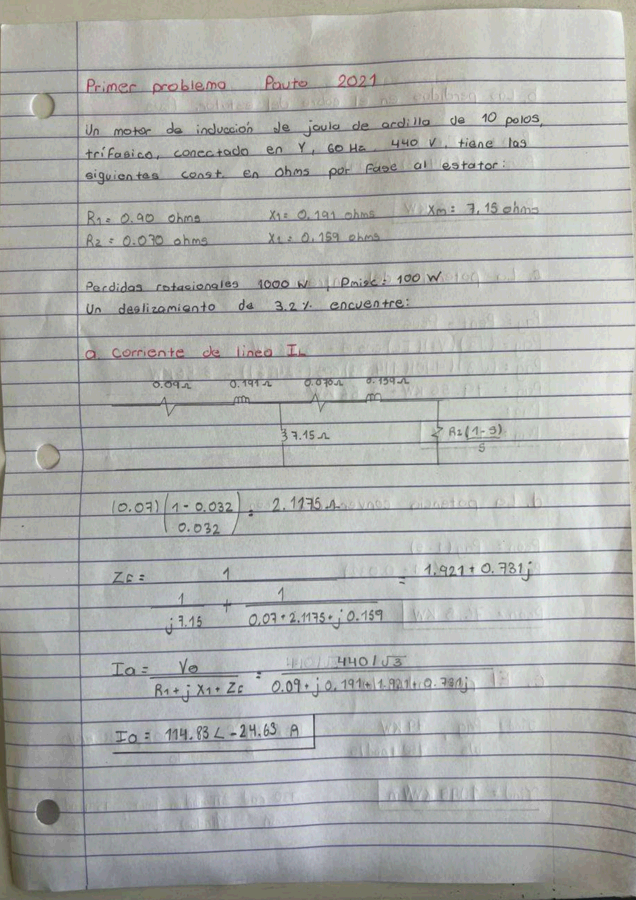 Primer problema Pauta 2021
Un motor de inducción de jaula de ardilla de 10 polos,
trifasico, conectado en Y, 60 Hz 440 V. tiene las
siguientes const. en Ohms por Fase al estator:
R1 = 0.90 ohms X1 = 0.191 ohms Xm = 7.15 ohms
R2 = 0.070 ohms X1 = 0.159 ohms
Perdidas rotacionales 1000 W, Pmisc = 100 W
Un deslizamiento de 3.2 % encuentre:
a. Corriente de linea IL
0.09Ω 0.191Ω 0.070Ω 0.159Ω
7.15Ω R2(1-S)
S
(0.07) (1 - 0.032 = 2.1175 Ω
0.032)
ZF = 1 = 1.921 + 0.731j
1 + 1
j7.15 0.07 + 2.1175 + j0.159
Ia = Vo = 440/√3
R1 + j X1 + ZF 0.09 + j0.191 + 1.921 + 0.731j
Ia = 114.83 ∠ -24.63 A